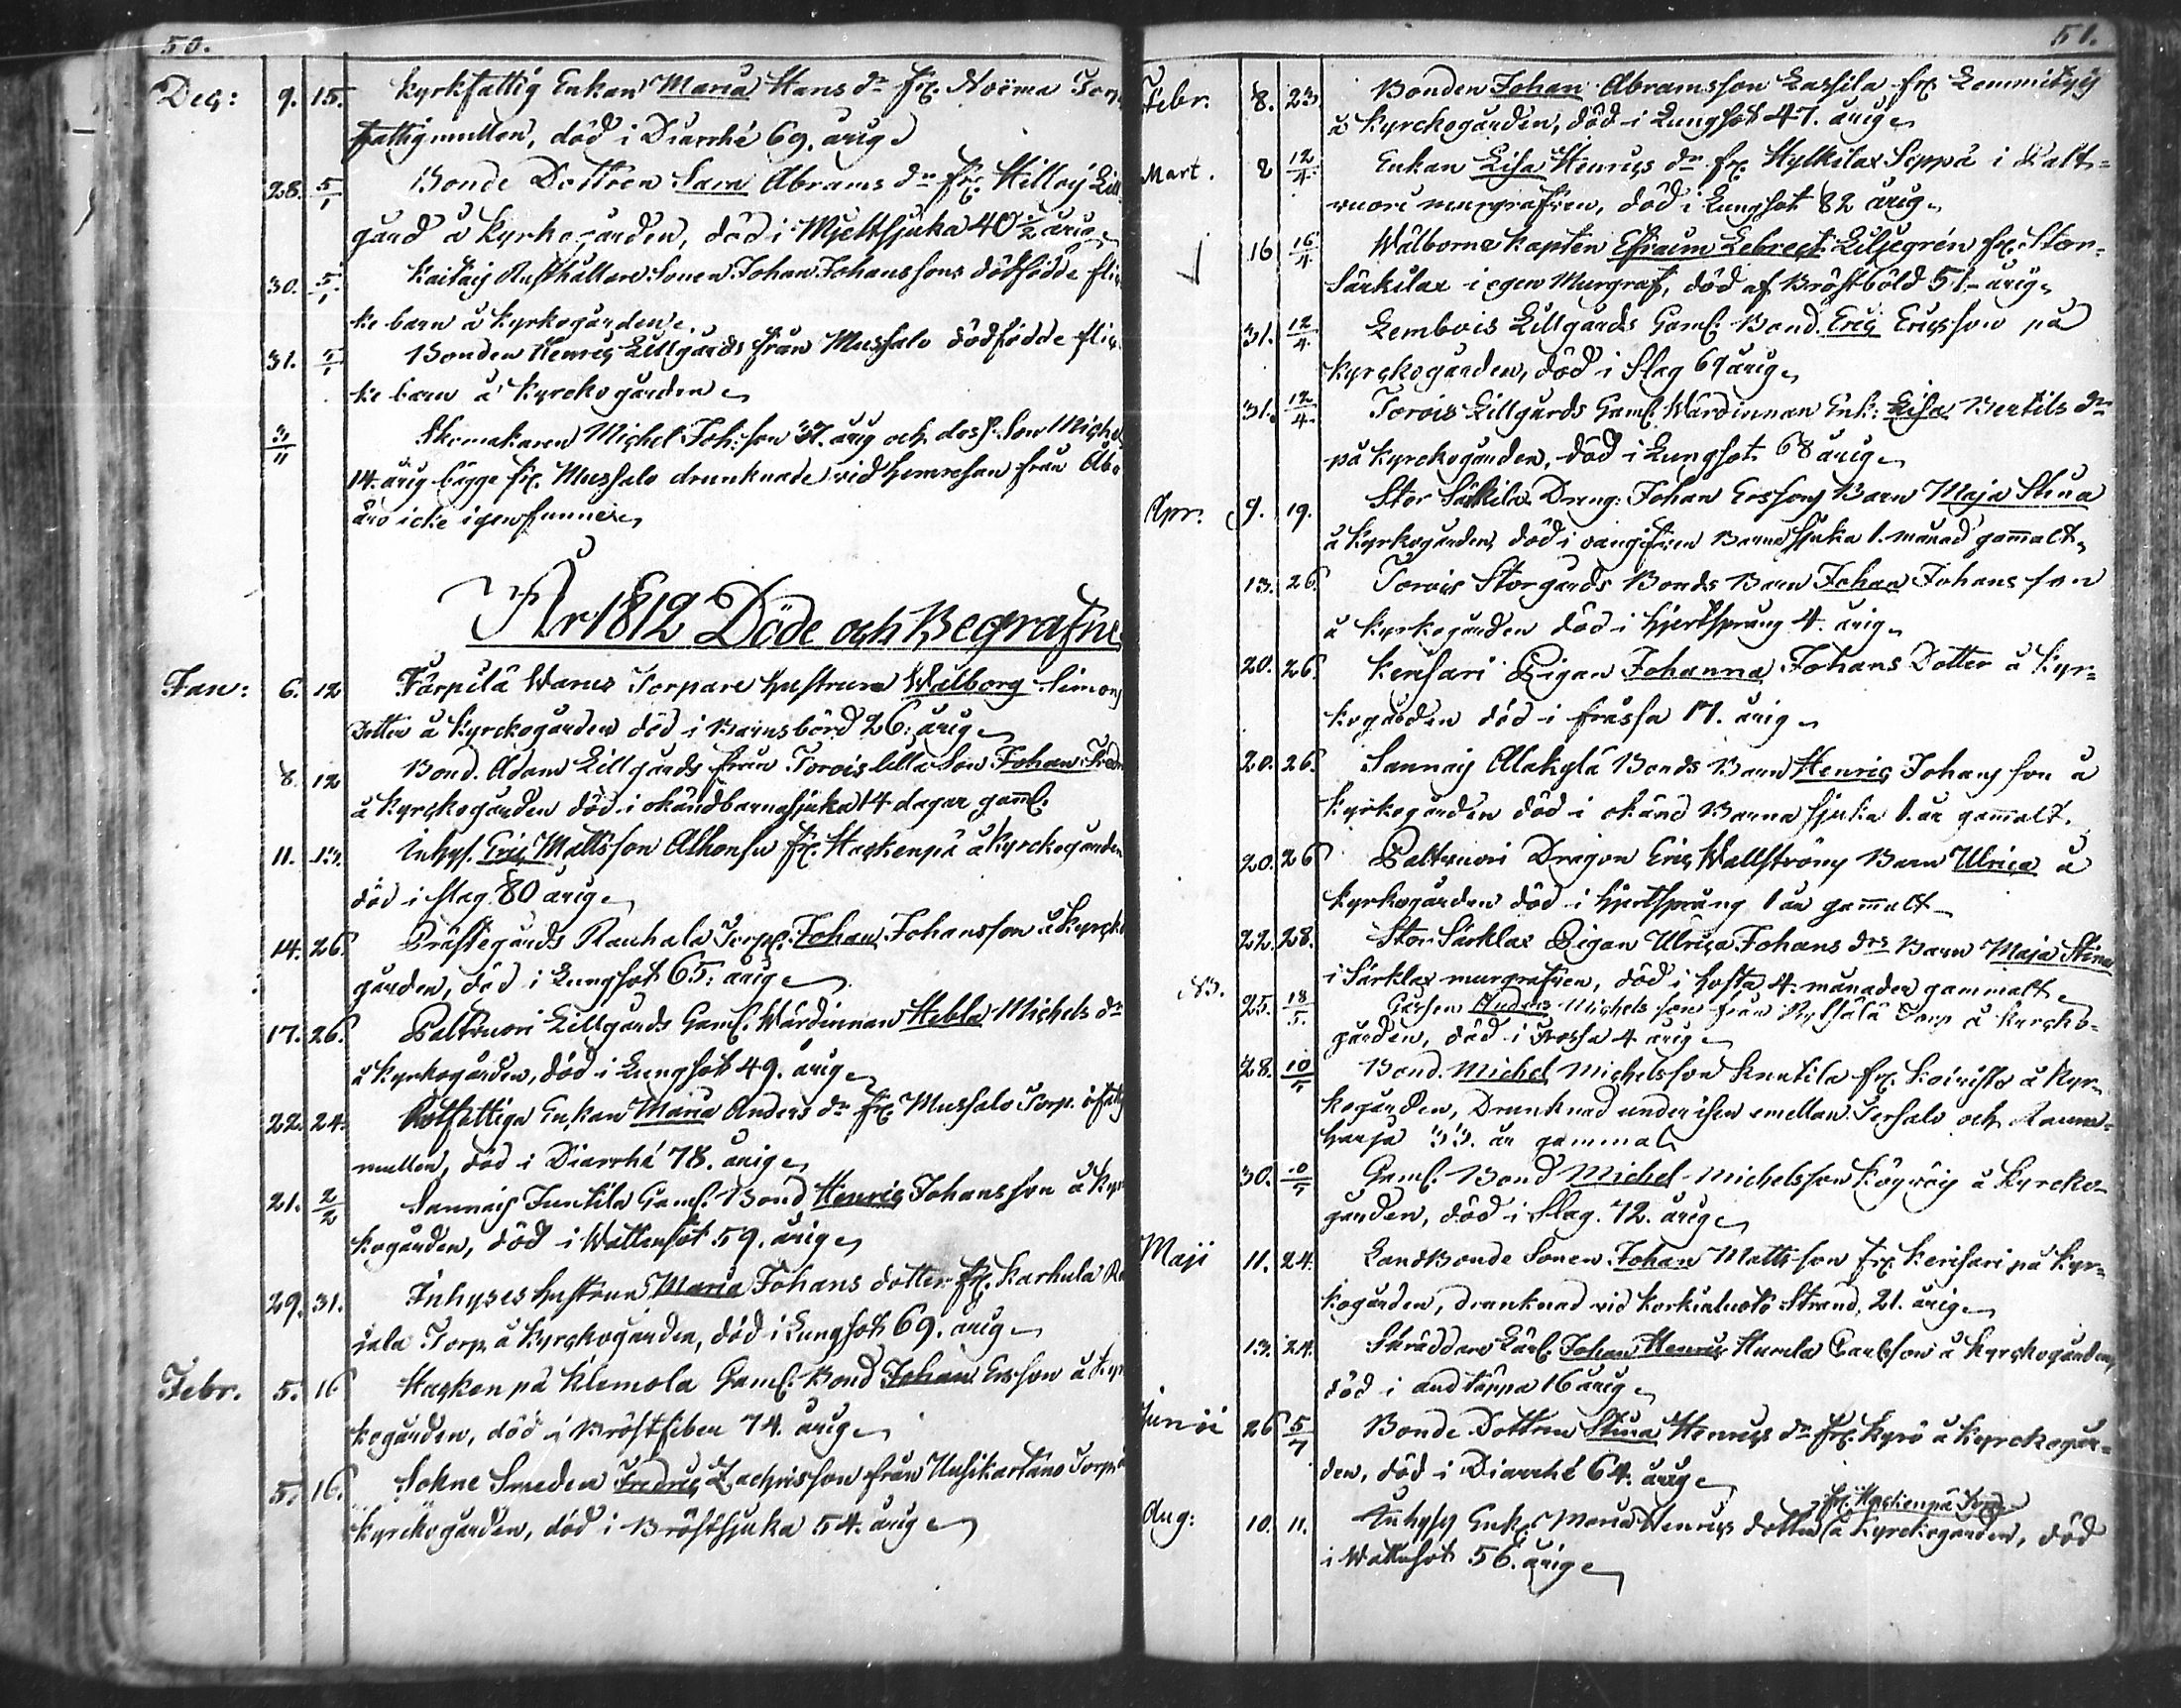 50.
Dec: 9. 15. Kyrkfattig Enkan Maria Hans dr fr. Torp
fattigmullen, död i Diarrhé 69. årig
28. 5/1 Bonde Dottren Sara Abrams dr fr. Hilloij Lill
gård å Kyrkogården, död i Mjeltsjuka 40 1/2 årig
30. 5/1. Rusthållare Sonen Johan Johanssons dödfödde flic
ke barn å Kyrkogården.
31. 5/1 Bonden Henric Lillgårds från Mussalo dödfödde flic
ke barn å Kyrckogården
3/11 Skomakaren Michel Joh:son 37. årig och dess Son Michel
14. årig bägge fr. Mussalo drunknade vid hemresan från Åbo
äro icke igenfunne
År 1812 Döde och Begrafne
Jan: 6. 12 Järpilä Warus Torpare hustrun Walborg Simons
Dotter å Kyrckogården död i Barnsbörd 26. årig
8. 12 Bond. Adam Lillgårds från Torois lilla Son Johan
å Kyrckogården död i okänd barnasjuka 14 dagar gaml.
11. 13. Inhys. Eric Mattsson Alhonsu fr. Haskenpä å Kyrckogården
död i slag 80 årig
14. 26. Prästegårds Rauhala Torp. Johan Johansson å Kyrcko
gården, död i Lungsot 65. årig
17. 26. Paltvuori Lillgårds Gaml. Wärdinnan Hebla Michels dr
å Kyrkogården, död i Lungsot 49. årig
22. 24. Rotfattiga Enkan Maria Anders dr fr. Mussalo Torp. i fattig
mullen, död i Diarrhé 78. årig
21. 2/2 Sannais Juntila Gaml. Bond Henric Johansson å Kyr
kogården, död i Wattusot 59. årig
29. 31. Inhyses hustrun Maria Johans dotter fr. Karhula
jala Torp å Kyrckogården, död i Lungsot 69. årig
Febr. 5. 16 Hasken på Klemola Gaml. Bond Johan Ersson å Kyr
kogården, död i Bröstfeber 74. årig
5. 16. Sokne Smeden Fredric Zachrisson från Uusikartano Torp å
Kyrckogården, död i Bröstsjuka 54. årig
51.
Febr. 8. 23. Bonden Johan Abramsson Lassila fr. Lemmityis
å Kyrckogården, död i Lungsot 47. årig
Mart. 2 12/4 Enkan Lisa Henrics dr fr. Hylkilax Seppä i Palt=
vuori murgrafven, död i Lungsot 82 årig
16 16/4 Wälborne Kapten Efraim Lebrecht Liljegrén fr. Stor=
Särkilax i egen Murgraf, död af Bröstböld 51. årig
31. 12/4. Lembois Lillgårds Gaml. Bond. Eric Ericsson på
Kyrckogården, död i Slag 69 årig
31. 12/4. Torois Lillgårds Gaml. Wärdinnan Enk: Lisa Bertils dr
på Kyrckogården, död i Lungsot 68 årig
Apr. 9. 19. Stor Särkilax Dreng: Johan Ersons Barn Maja Stina
å Kyrkogården, död i Barnasjuka 1. månad gammalt
13. 26. Torois Storgårds Bonds Barn Johan Johansson
å Kyrkogården död i hjertsprång 4. årig
20. 26. Kerisari Pigan Johanna Johans Dotter å Kyr=
kogården död i frässa 17. årig
20. 26. Sannais Alakylä Bonds Barn Henric Johansson å
Kyrkogården död i okänd Barna sjuka 1. år gammalt.
20. 26 Paltvuori Dragon Eric Wallströms Barn Ulrica å
Kyrkogården död i hjertsprång 1 år gammalt
22. 28. Stor Särklax Pigan Ulrica Johans drs Barn Maja Stina
i Särklax murgrafven, död i hosta 4. månader gammalt
25. 18/5. Gossen Anders Michels son från Torp å Kyrcko=
gården, död i Frossa 4 årig
28. 10/5 Bond. Michel Michelsson Knutila fr. Koivisto å Kyr=
kogården, Drunknad under isen emellan Tersalo och
harja 33. år gammal
30. 10/5 Gaml. Bond Michel Michelsson Röyröis å Kyrcko=
gården, död i Slag. 72. årig
Maji 11. 24. Landbonde Sonen Johan Mattsson fr. Kerisari på Kyr=
kogården, drunknad vid Korkialuoto Strand, 21. årig
13. 24. Skräddare Lärl. Johan Henric Hurula Carlsson å Kyrckogården,
död i andtäppa 16 årig
Junii 26 5/7 Bonde Dottren Stina Henrics dr fr. Kyrö å Kyrckogår=
den, död i Diarrhé 64. årig
fr. Haskenpä Torp
Aug: 10. 11. Inhyses Enk. Maria Henrics dotter å Kyrckogården, död
i Wattusot 56. årig